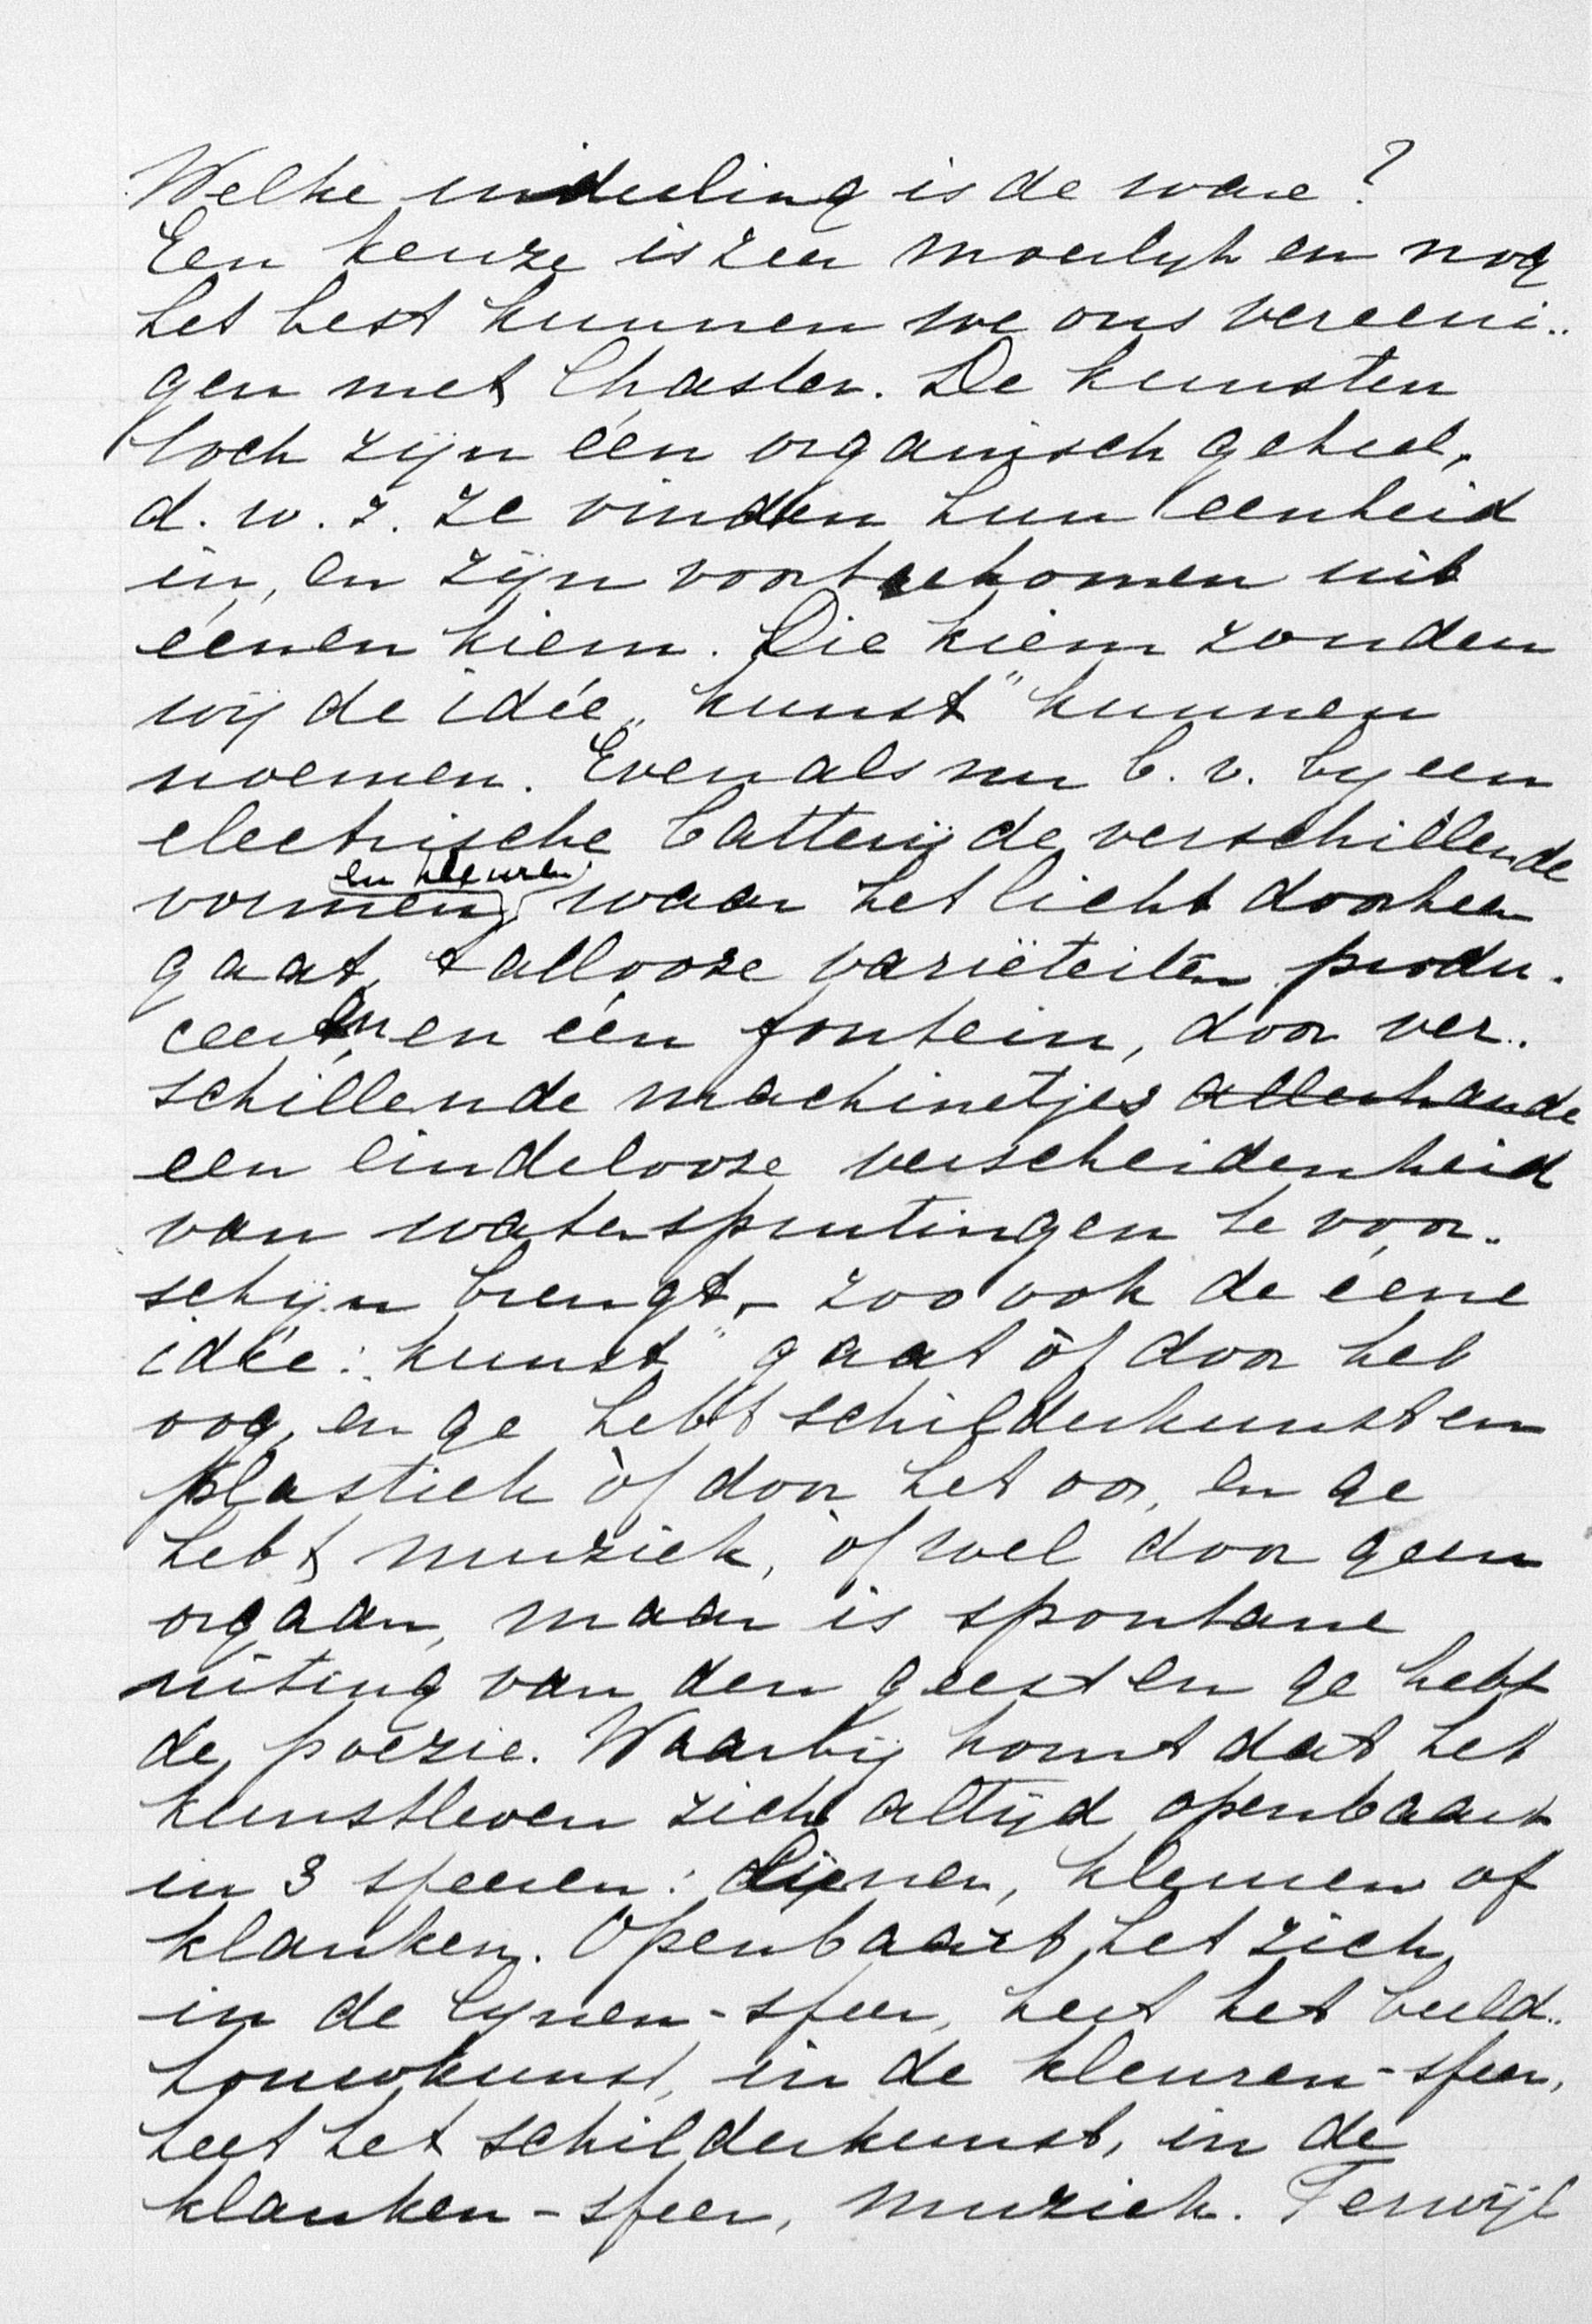 Welke indeeling is de ware?
Een keuze is zeer moeilyk en nog
het best kunnen we ons vereeni-
gen met Chasler. De kunsten
toch zijn één organisch geheel,
d. w. z. ze vinden hun eenheid
in, en zijn voortgekomen uit
éénen kiem. Die kiem zouden
wij de idée „kunst" kunnen
noemen. Evenals nu b. v. by een
electrische batterij de verschillende
vormen en kleuren, waar het licht doorheen
gaat, talloore variëteiten produ-
ceeren, en één fontein, door ver-
schillende machinetjes allerhande
een eindeloose verscheidenheid
van waterspuitingen te voor-
schijn brengt, - zoo ook de ééne
idée: „kunst" gaat òf door het
oog, en ge hebt schilderkunst en
plastiek òf door het oor, en ge
hebt muziek, òf wel door geen
orgaan, maar is spontane
uiting van den geest en ge hebt
de poëzie. Waarbij komt dat het
kunstleven zich altijd openbaart
in 3 sfeeren: lijnen, kleuren of
klanken. Openbaart het zich
in de lynen-sfeer, heet het beeld-
houwkunst, in de kleuren-sfeer,
heet het schilderkunst, in de
klanken-sfeer, muziek. Terwijl